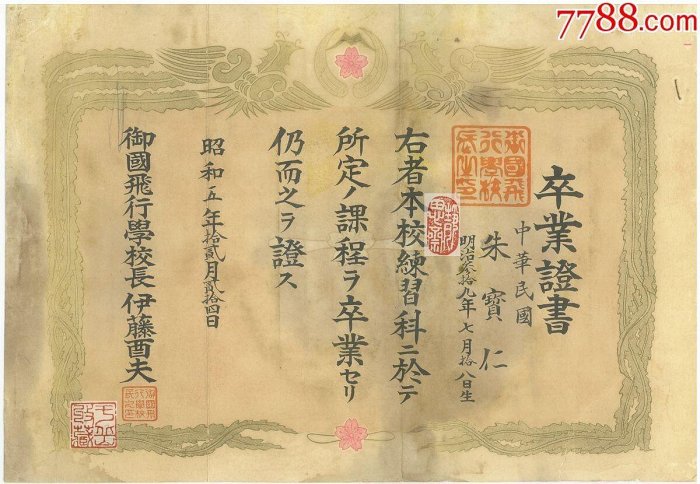 7788.com
卒業證書
中華民國
朱寶仁
明治參拾九年七月拾八日生
右者本校練習科ニ於テ
所定ノ課程ヲ卒業セリ
仍而之ヲ證ス
昭和五年拾貳月貳拾四日
御國飛行學校長伊藤酉夫
御國飛行學校長之印